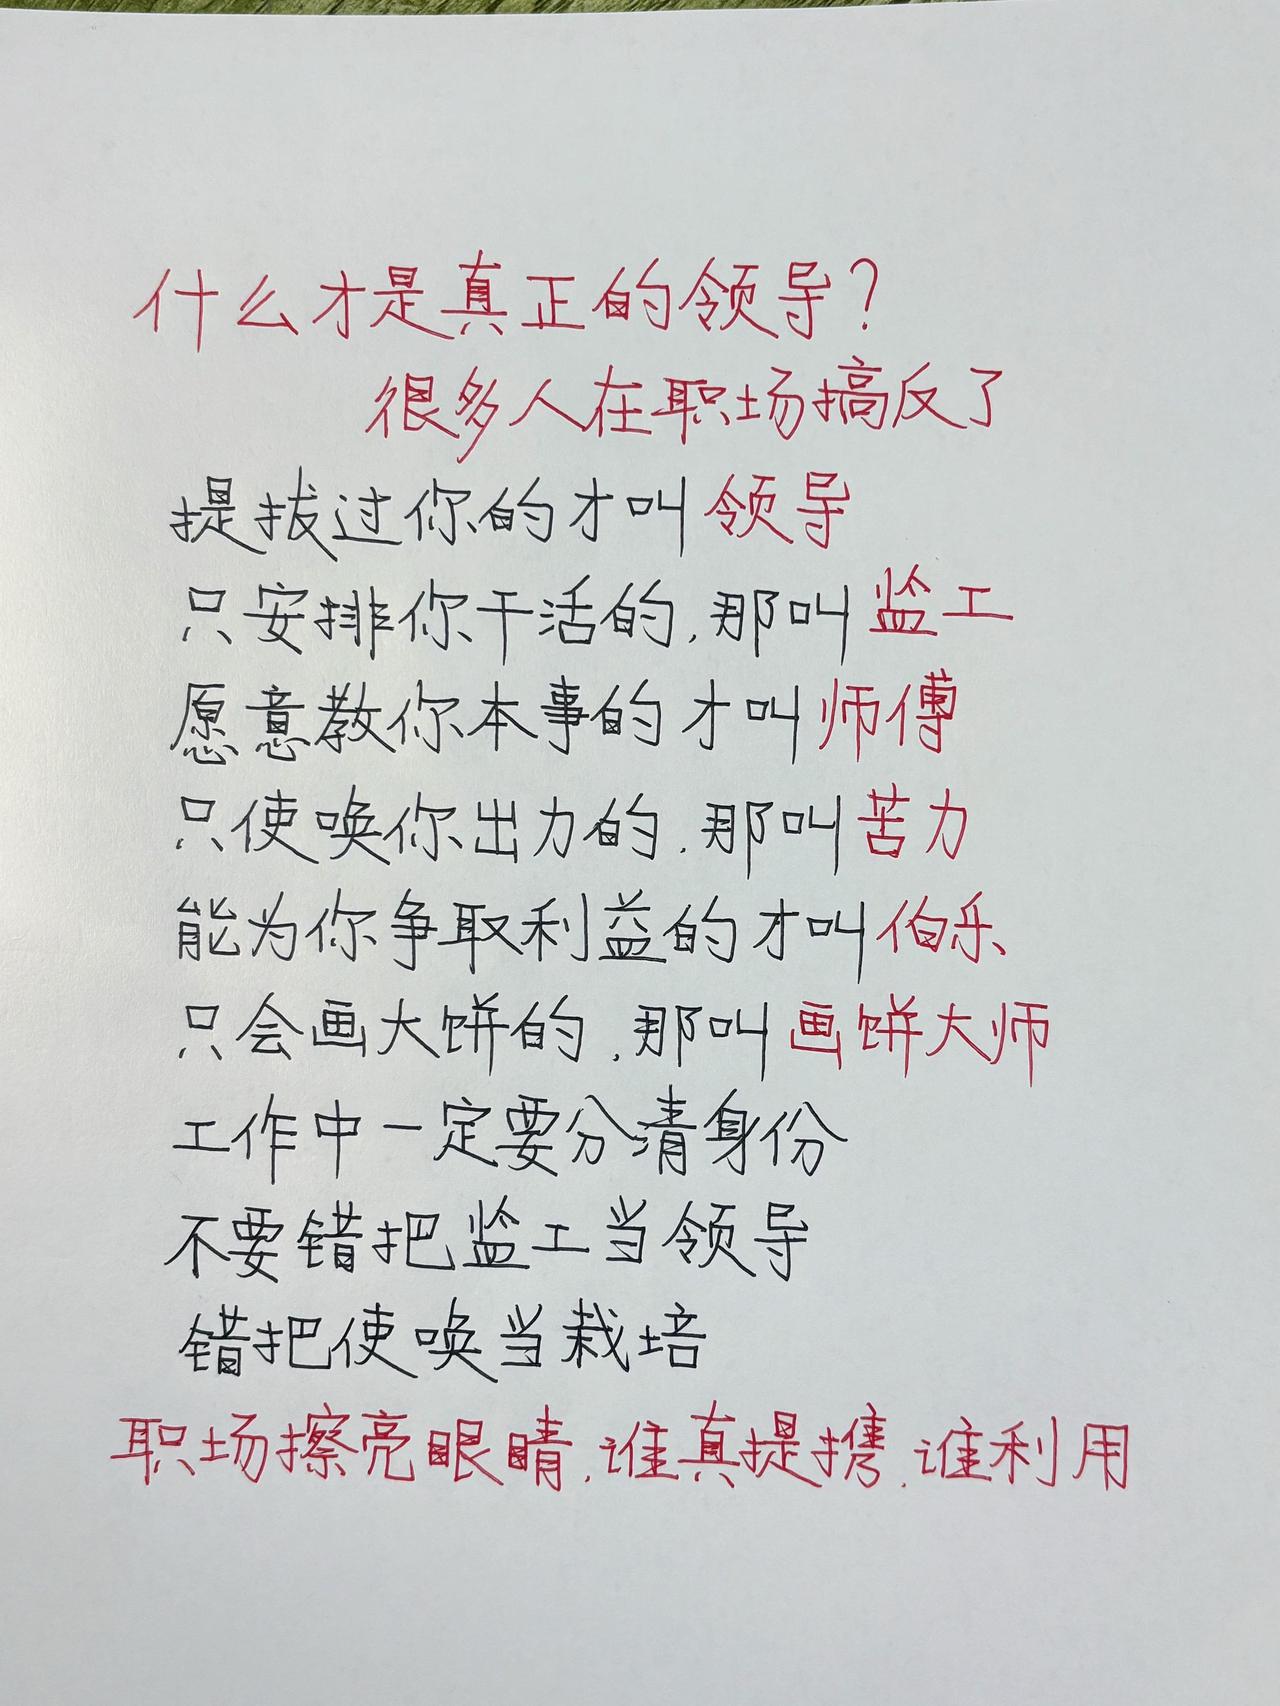 什么才是真正的领导？
很多人在职场搞反了
提拔过你的才叫领导
只安排你干活的，那叫监工
愿意教你本事的才叫师傅
只使唤你出力的，那叫苦力
能为你争取利益的才叫伯乐
只会画大饼的，那叫画饼大师
工作中一定要分清身份
不要错把监工当领导
错把使唤当栽培
职场擦亮眼睛，谁真提携，谁利用